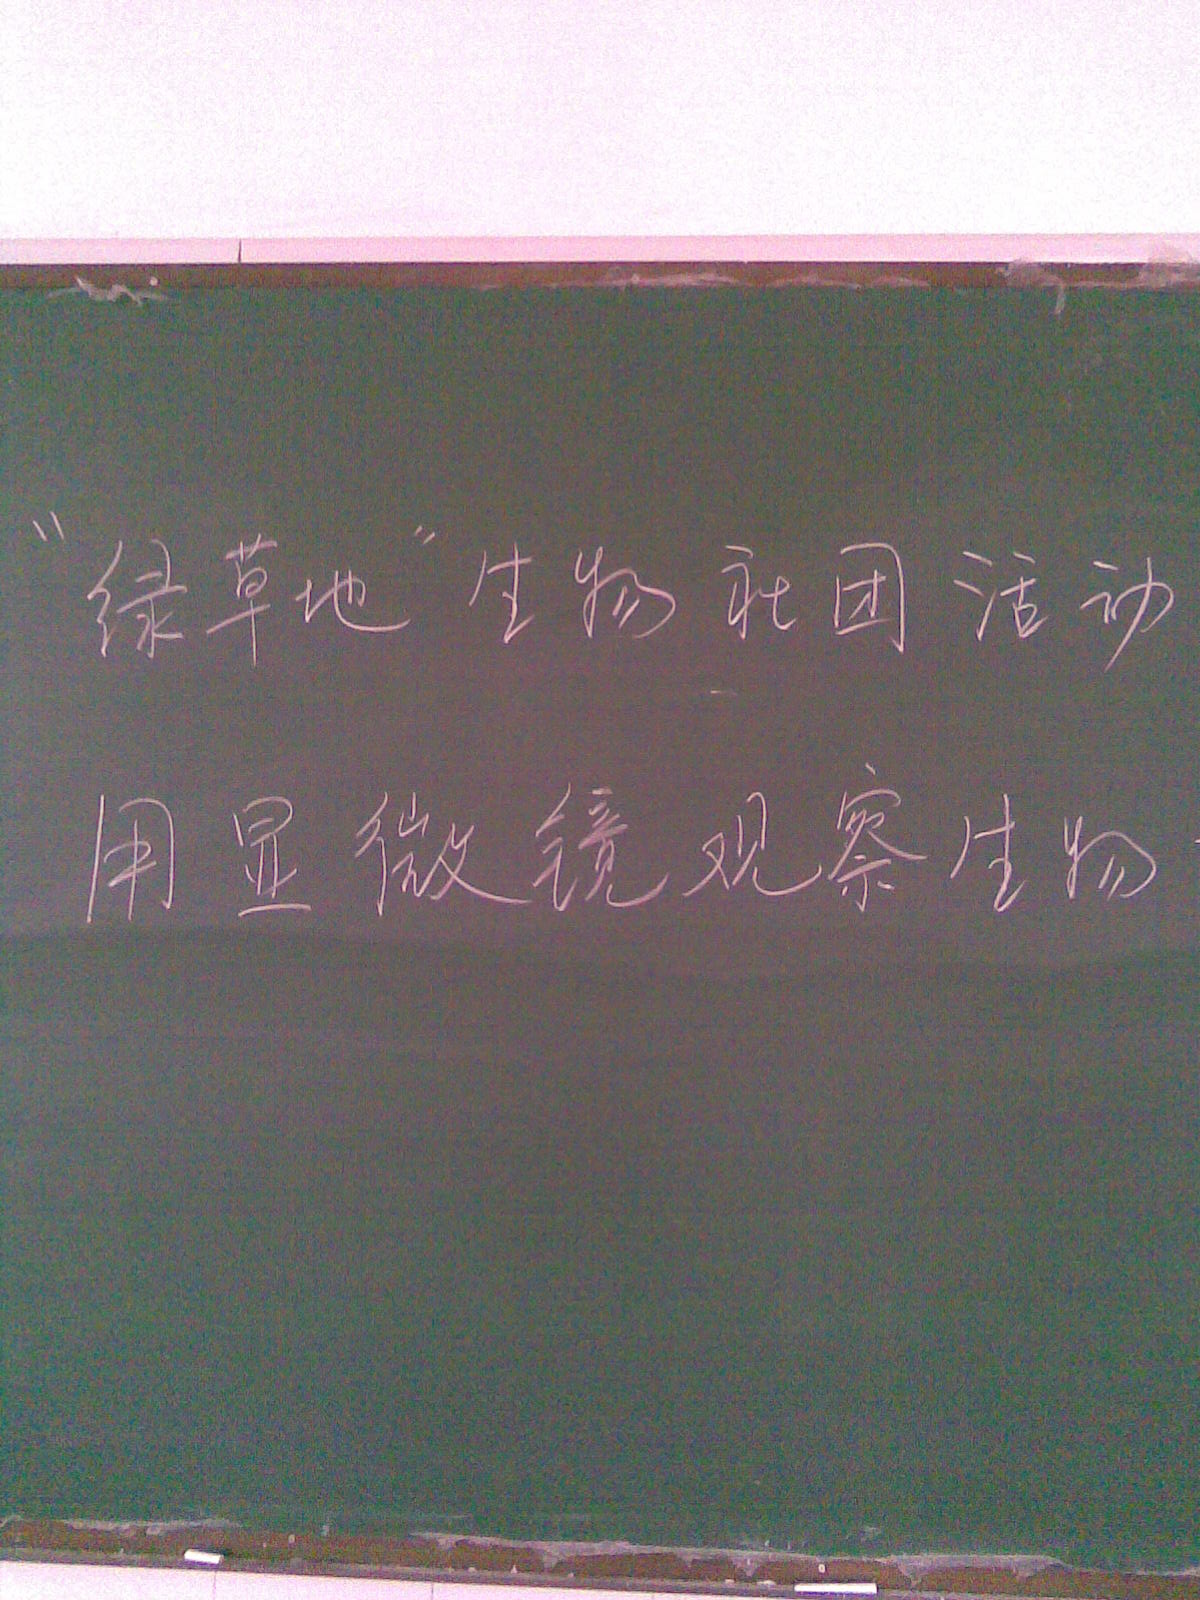 “绿草地”生物社团活动
用显微镜观察生物